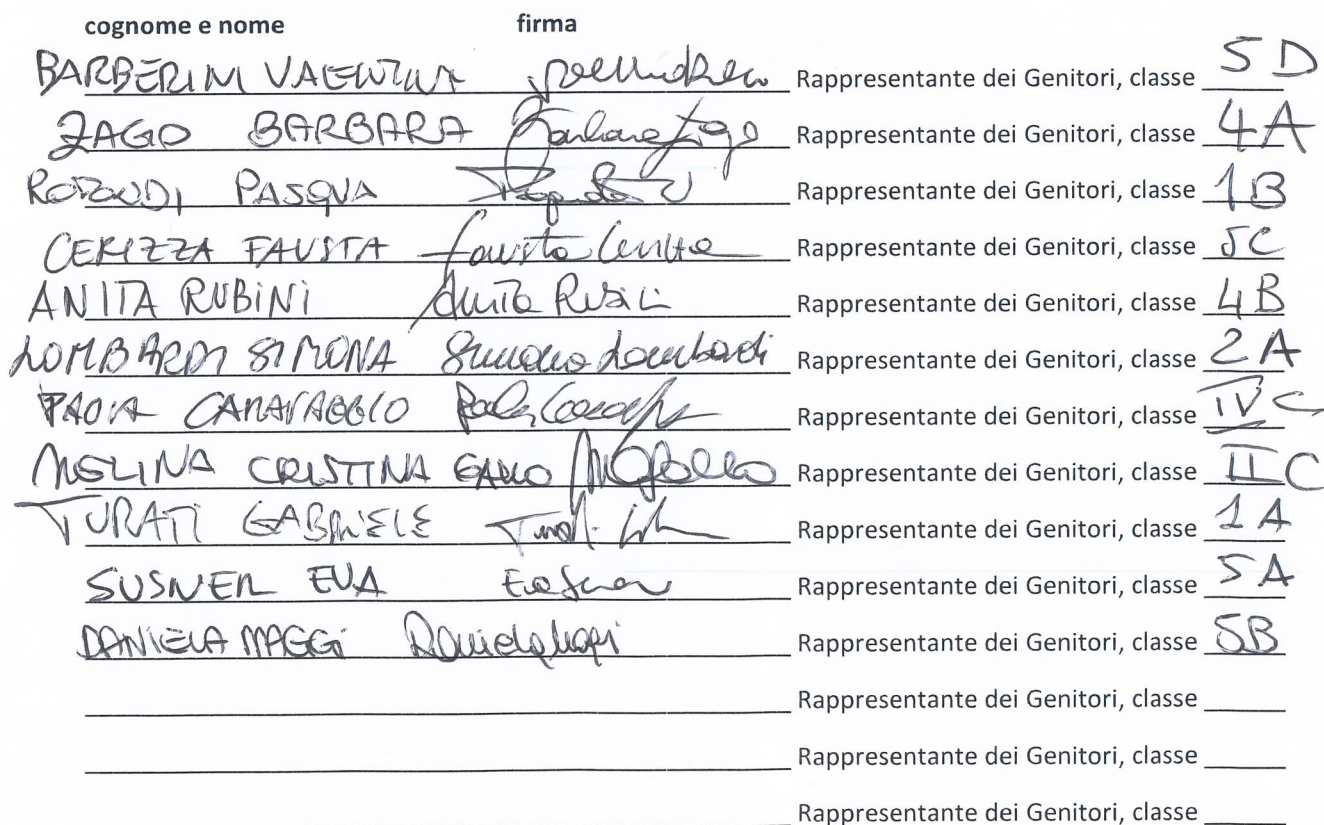 cognome e nome firma
BARBERINI VALENTINA Rappresentante dei Genitori, classe 5D
ZAGO BARBARA Barbara Zago Rappresentante dei Genitori, classe 4A
ROTONDI PASQUA Rappresentante dei Genitori, classe 1B
CERIZZA FAUSTA Fausta Cerizza Rappresentante dei Genitori, classe 5C
ANITA RUBINI Anita Rubini Rappresentante dei Genitori, classe 4B
LOMBARDI SIMONA Simona Lombardi Rappresentante dei Genitori, classe 2A
PAOLA CARAVAGGIO Rappresentante dei Genitori, classe IV C
CRISTINA GALLO Rappresentante dei Genitori, classe II C
TURATI GABRIELE Rappresentante dei Genitori, classe 1A
SUSNER EVA Rappresentante dei Genitori, classe 5A
DANIELA MAGGI Daniela Maggi Rappresentante dei Genitori, classe 5B
Rappresentante dei Genitori, classe
Rappresentante dei Genitori, classe
Rappresentante dei Genitori, classe